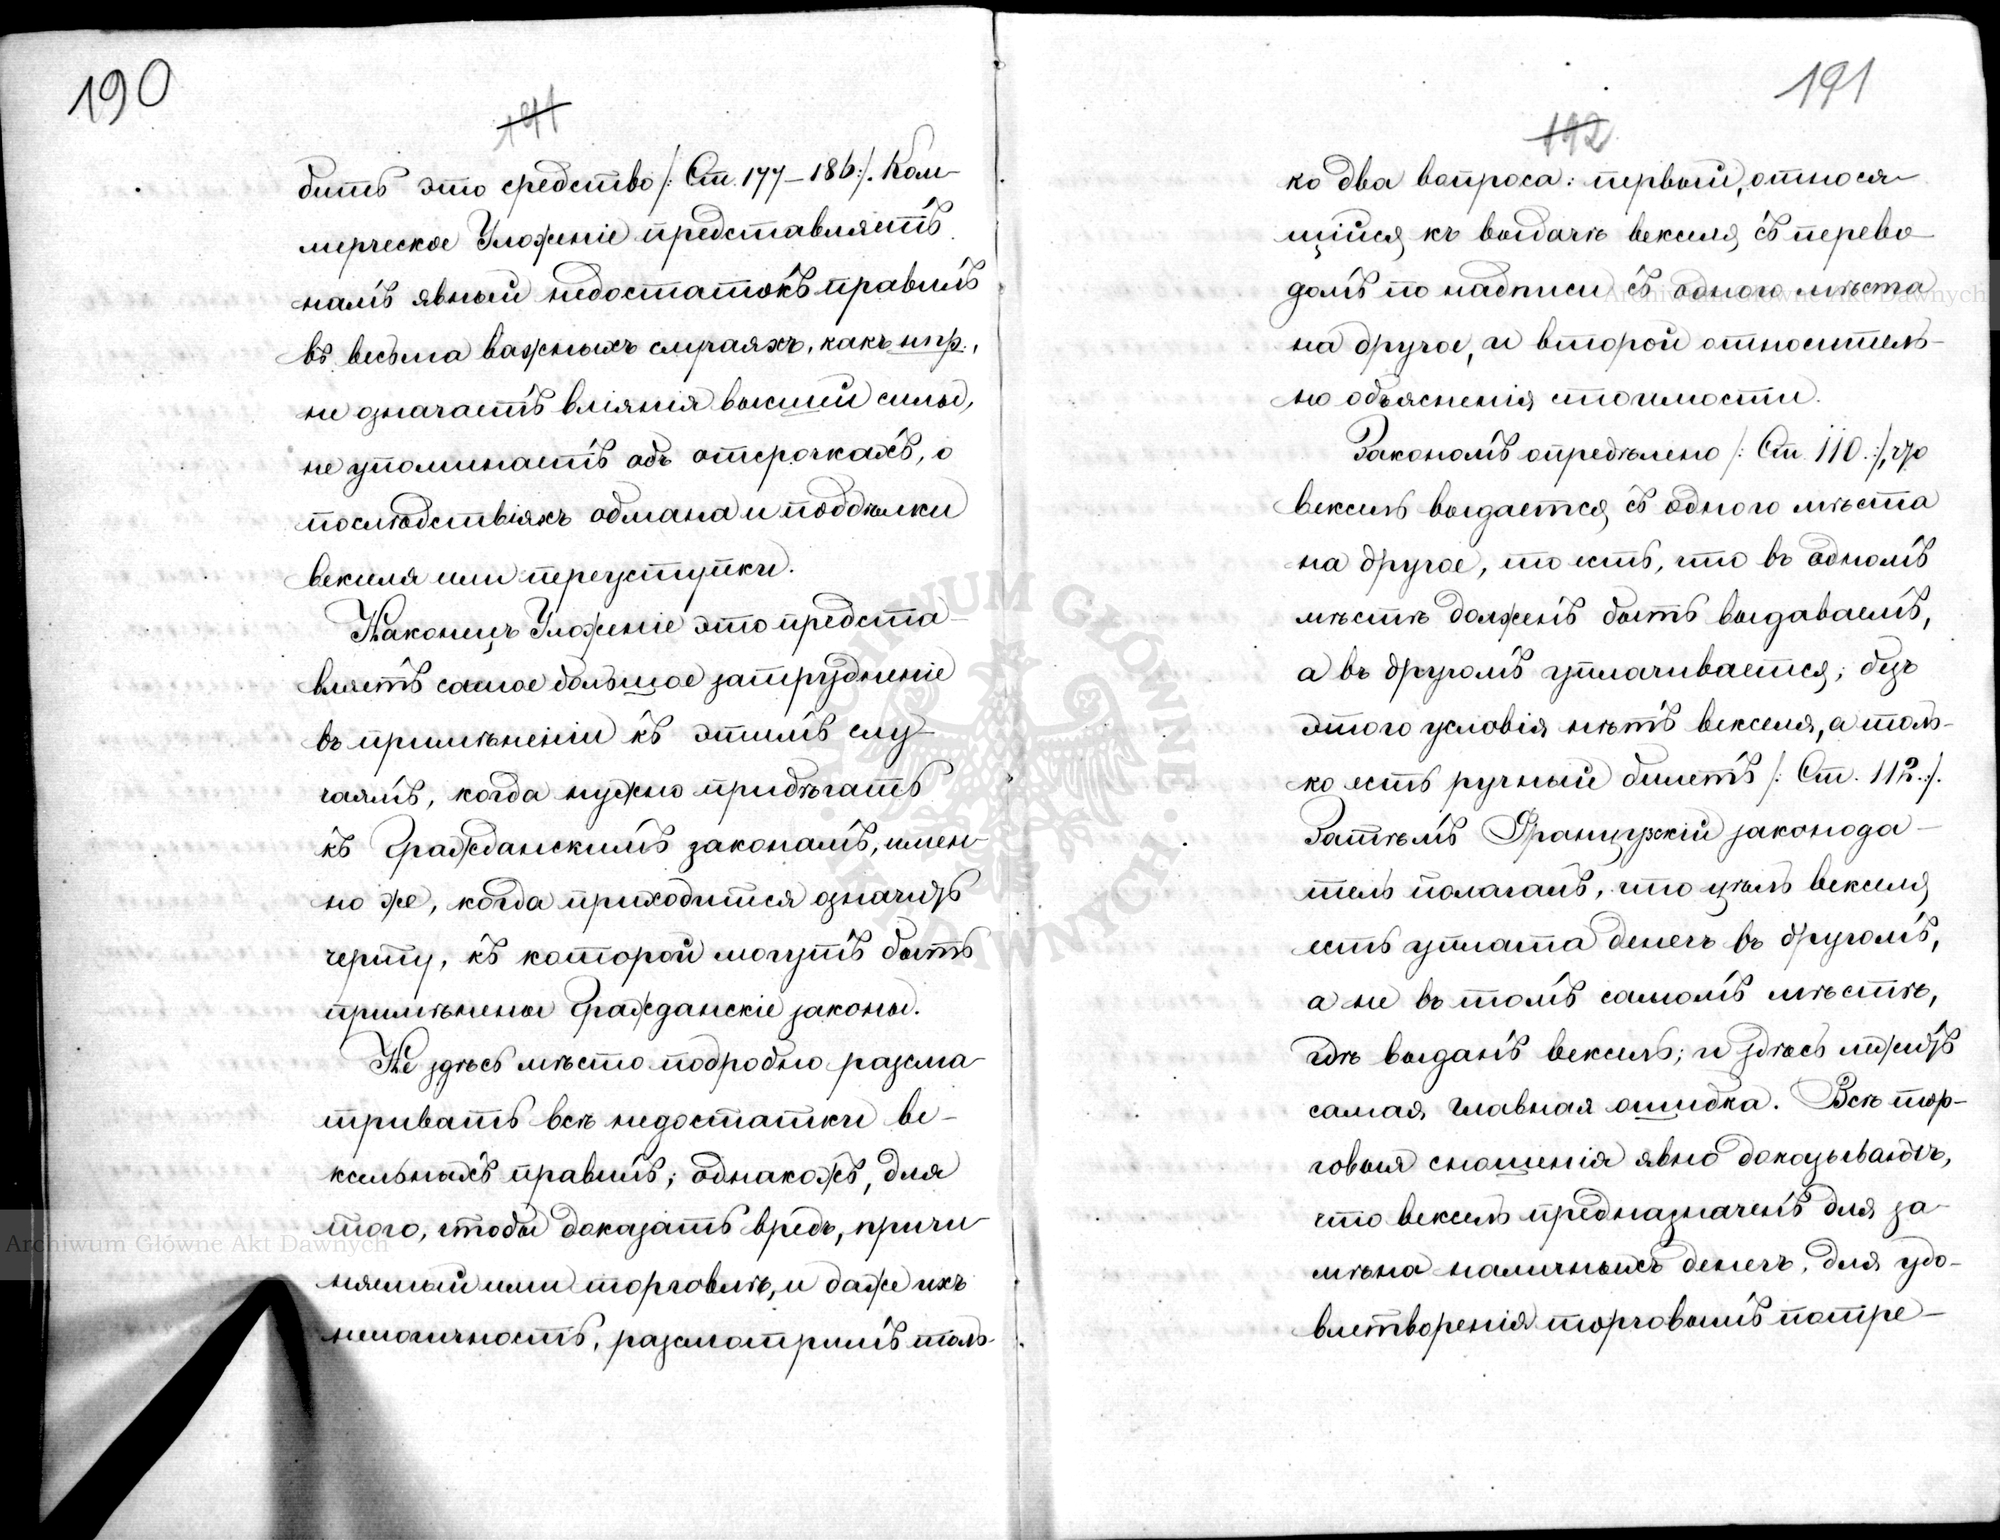 190
191
бить это средство /: Ст. 177–186 :/. Ком-
мерческое Уложеніе представляетъ
намъ явный недостатокъ правилъ
въ весьма важныхъ случаяхъ, какъ нпр.,
не означаетъ вліянія высшей силы,
не упоминаетъ объ отсрочкахъ, о
послѣдствіяхъ обмана и поддѣлки
векселя или переуступки.
Наконецъ Уложеніе это предста-
вляетъ самое большое затрудненіе
въ примѣненіи къ этимъ слу-
чаямъ, когда нужно прибѣгать
къ Гражданскимъ законамъ, имен-
но же, когда приходится означить
черту, къ которой могутъ быть
примѣнены Гражданскіе законы.
Не здѣсь мѣсто подробно разсма-
тривать всѣ недостатки ве-
ксельныхъ правилъ; однакожъ, для
того, чтобы доказать вредъ, причи-
няемый ими торговлѣ, и даже ихъ
нелогичность, разсмотримъ толь-
191
192
ко два вопроса: первый, относя-
щійся къ выдачѣ векселя съ перево-
домъ по надписи съ одного мѣста
на другое, и второй относитель-
но объясненія стоимости.
Закономъ опредѣлено /: Ст. 110 :/, что
вексель выдается съ одного мѣста
на другое, то есть, что въ одномъ
мѣстѣ долженъ быть выдаваемъ,
а въ другомъ уплачивается; безъ
этого условія нѣтъ векселя, а толь-
ко есть ручный билетъ /: Ст. 112 :/.
Затѣмъ Французскій законода-
тель полагалъ, что цѣль векселя
есть уплата денегъ въ другомъ,
а не въ томъ самомъ мѣстѣ,
гдѣ выданъ вексель; и здѣсь лежитъ
самая главная ошибка. Всѣ тор-
говыя сношенія явно доказываютъ,
что вексель предназначенъ для за-
мѣна наличныхъ денегъ, для удо-
влетворенія торговымъ потре-
Archiwum Główne Akt Dawnych
Archiwum Główne Akt Dawnych
ARCHIWUM GŁÓWNE AKT DAWNYCH